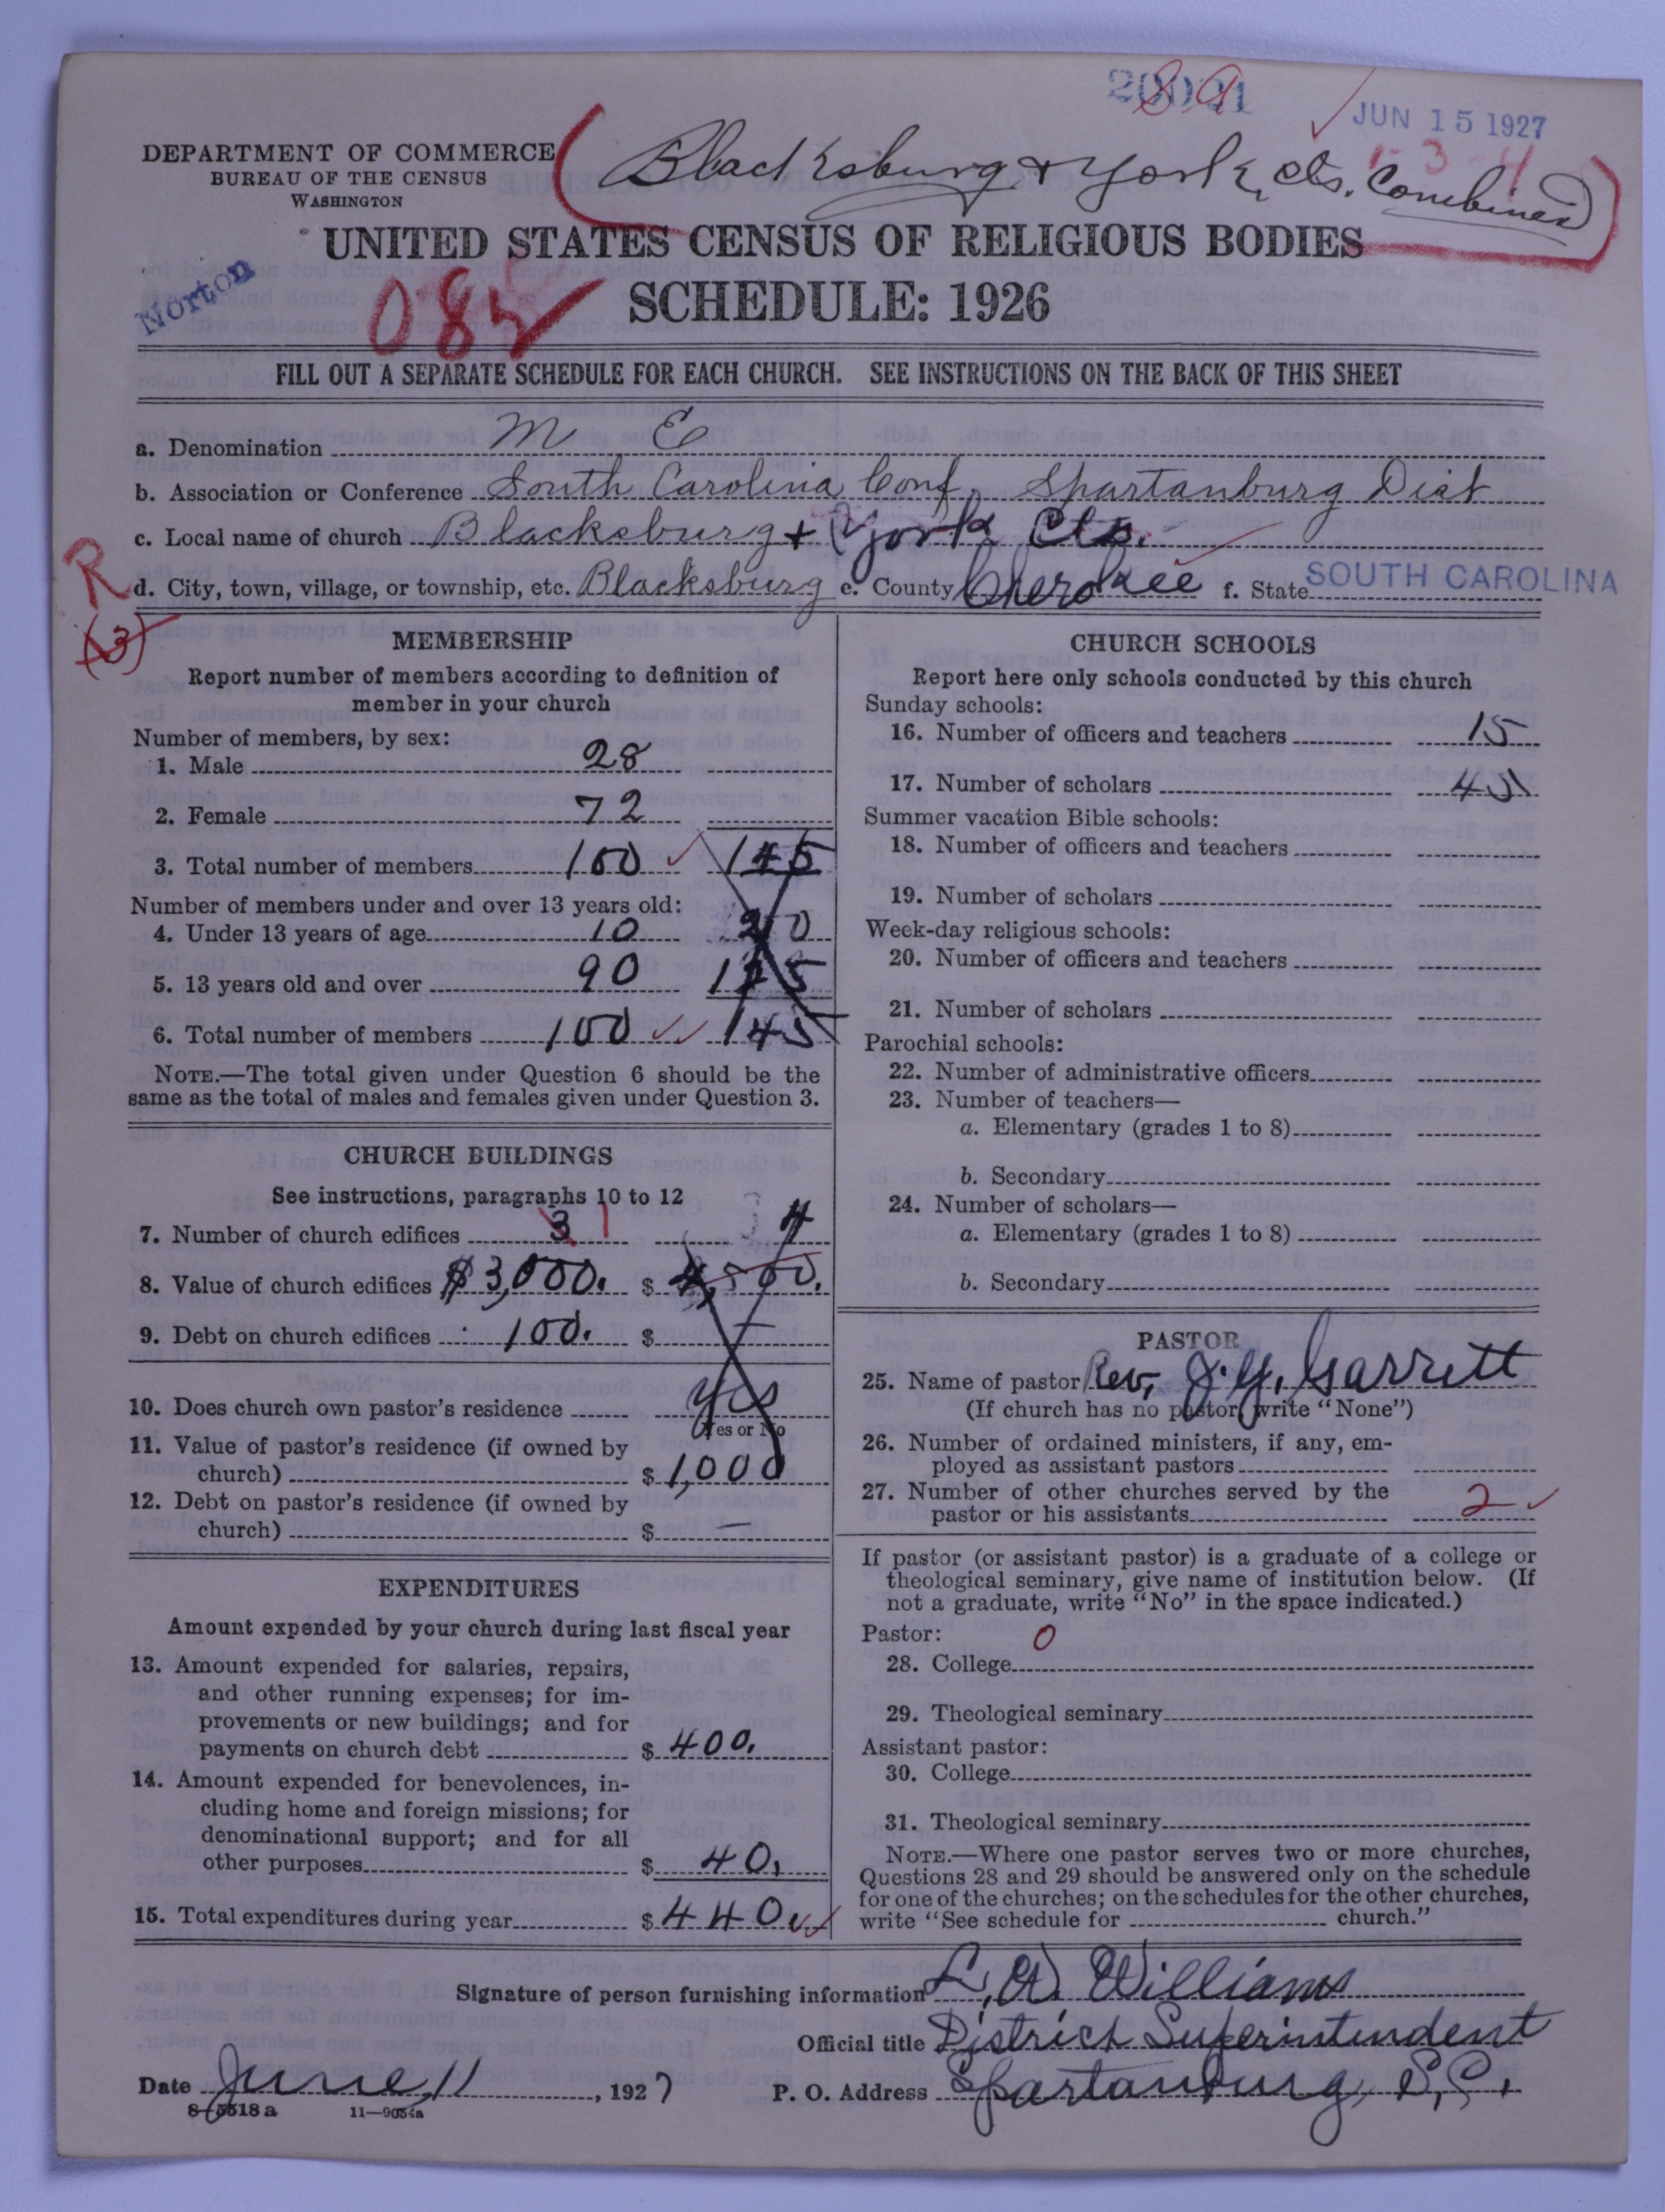 20001
89
JUN 15 1927
1-3-4
DEPARTMENT OF COMMERCE
BUREAU OF THE CENSUS
WASHINGTON
Blacksburg & York, Cts. Combined
UNITED STATES CENSUS OF RELIGIOUS BODIES
SCHEDULE: 1926
Norton
082
FILL OUT A SEPARATE SCHEDULE FOR EACH CHURCH. SEE INSTRUCTIONS ON THE BACK OF THIS SHEET
a. Denomination M E
b. Association or Conference South Carolina Conf. Spartanburg Dist
c. Local name of church Blacksburg + York Cts.
R
d. City, town, village, or township, etc. Blacksburg e. County Cherokee f. State SOUTH CAROLINA
(3)
MEMBERSHIP
Report number of members according to definition of
member in your church
Number of members, by sex:
1. Male 28
2. Female 72
3. Total number of members 100 145
Number of members under and over 13 years old:
4. Under 13 years of age 10 20
5. 13 years old and over 90 125
6. Total number of members 100 145
NOTE.—The total given under Question 6 should be the
same as the total of males and females given under Question 3.
CHURCH BUILDINGS
See instructions, paragraphs 10 to 12
7. Number of church edifices 3 1 4
8. Value of church edifices $3,000. $ 4,500.
9. Debt on church edifices 100. $ —
10. Does church own pastor's residence yes
Yes or No
11. Value of pastor's residence (if owned by
church) $ 1,000
12. Debt on pastor's residence (if owned by
church) $ —
EXPENDITURES
Amount expended by your church during last fiscal year
13. Amount expended for salaries, repairs,
and other running expenses; for im-
provements or new buildings; and for
payments on church debt $ 400.
14. Amount expended for benevolences, in-
cluding home and foreign missions; for
denominational support; and for all
other purposes $ 40.
15. Total expenditures during year $ 440.
CHURCH SCHOOLS
Report here only schools conducted by this church
Sunday schools:
16. Number of officers and teachers 15
17. Number of scholars 45
Summer vacation Bible schools:
18. Number of officers and teachers
19. Number of scholars
Week-day religious schools:
20. Number of officers and teachers
21. Number of scholars
Parochial schools:
22. Number of administrative officers
23. Number of teachers—
a. Elementary (grades 1 to 8)
b. Secondary
24. Number of scholars—
a. Elementary (grades 1 to 8)
b. Secondary
PASTOR
25. Name of pastor Rev. J. Y. Garrett
(If church has no pastor, write "None")
26. Number of ordained ministers, if any, em-
ployed as assistant pastors
27. Number of other churches served by the
pastor or his assistants 2
If pastor (or assistant pastor) is a graduate of a college or
theological seminary, give name of institution below. (If
not a graduate, write "No" in the space indicated.)
Pastor: 0
28. College
29. Theological seminary
Assistant pastor:
30. College
31. Theological seminary
NOTE.—Where one pastor serves two or more churches,
Questions 28 and 29 should be answered only on the schedule
for one of the churches; on the schedules for the other churches,
write "See schedule for church."
Signature of person furnishing information L. W. Williams
Official title District Superintendent
Date June 11, 1927 P. O. Address Spartanburg, S. C.
8-5518a 11-9054a